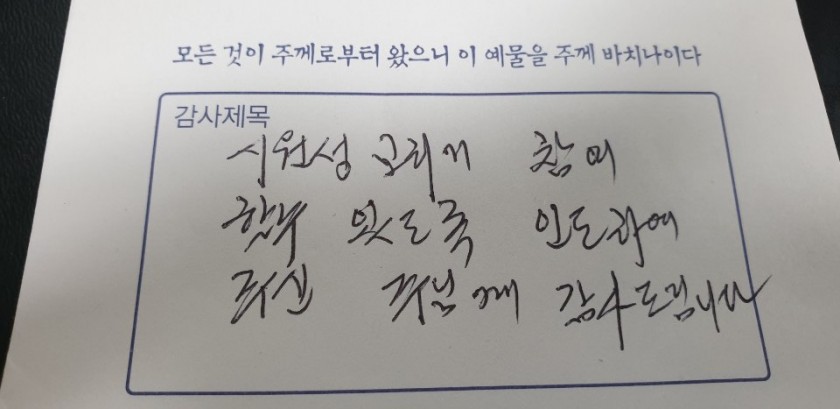 모든 것이 주께로부터 왔으니 이 예물을 주께 바치나이다
감사제목
시원성 참여
할수 있도록 인도하여
주신 주님께 감사드립니다